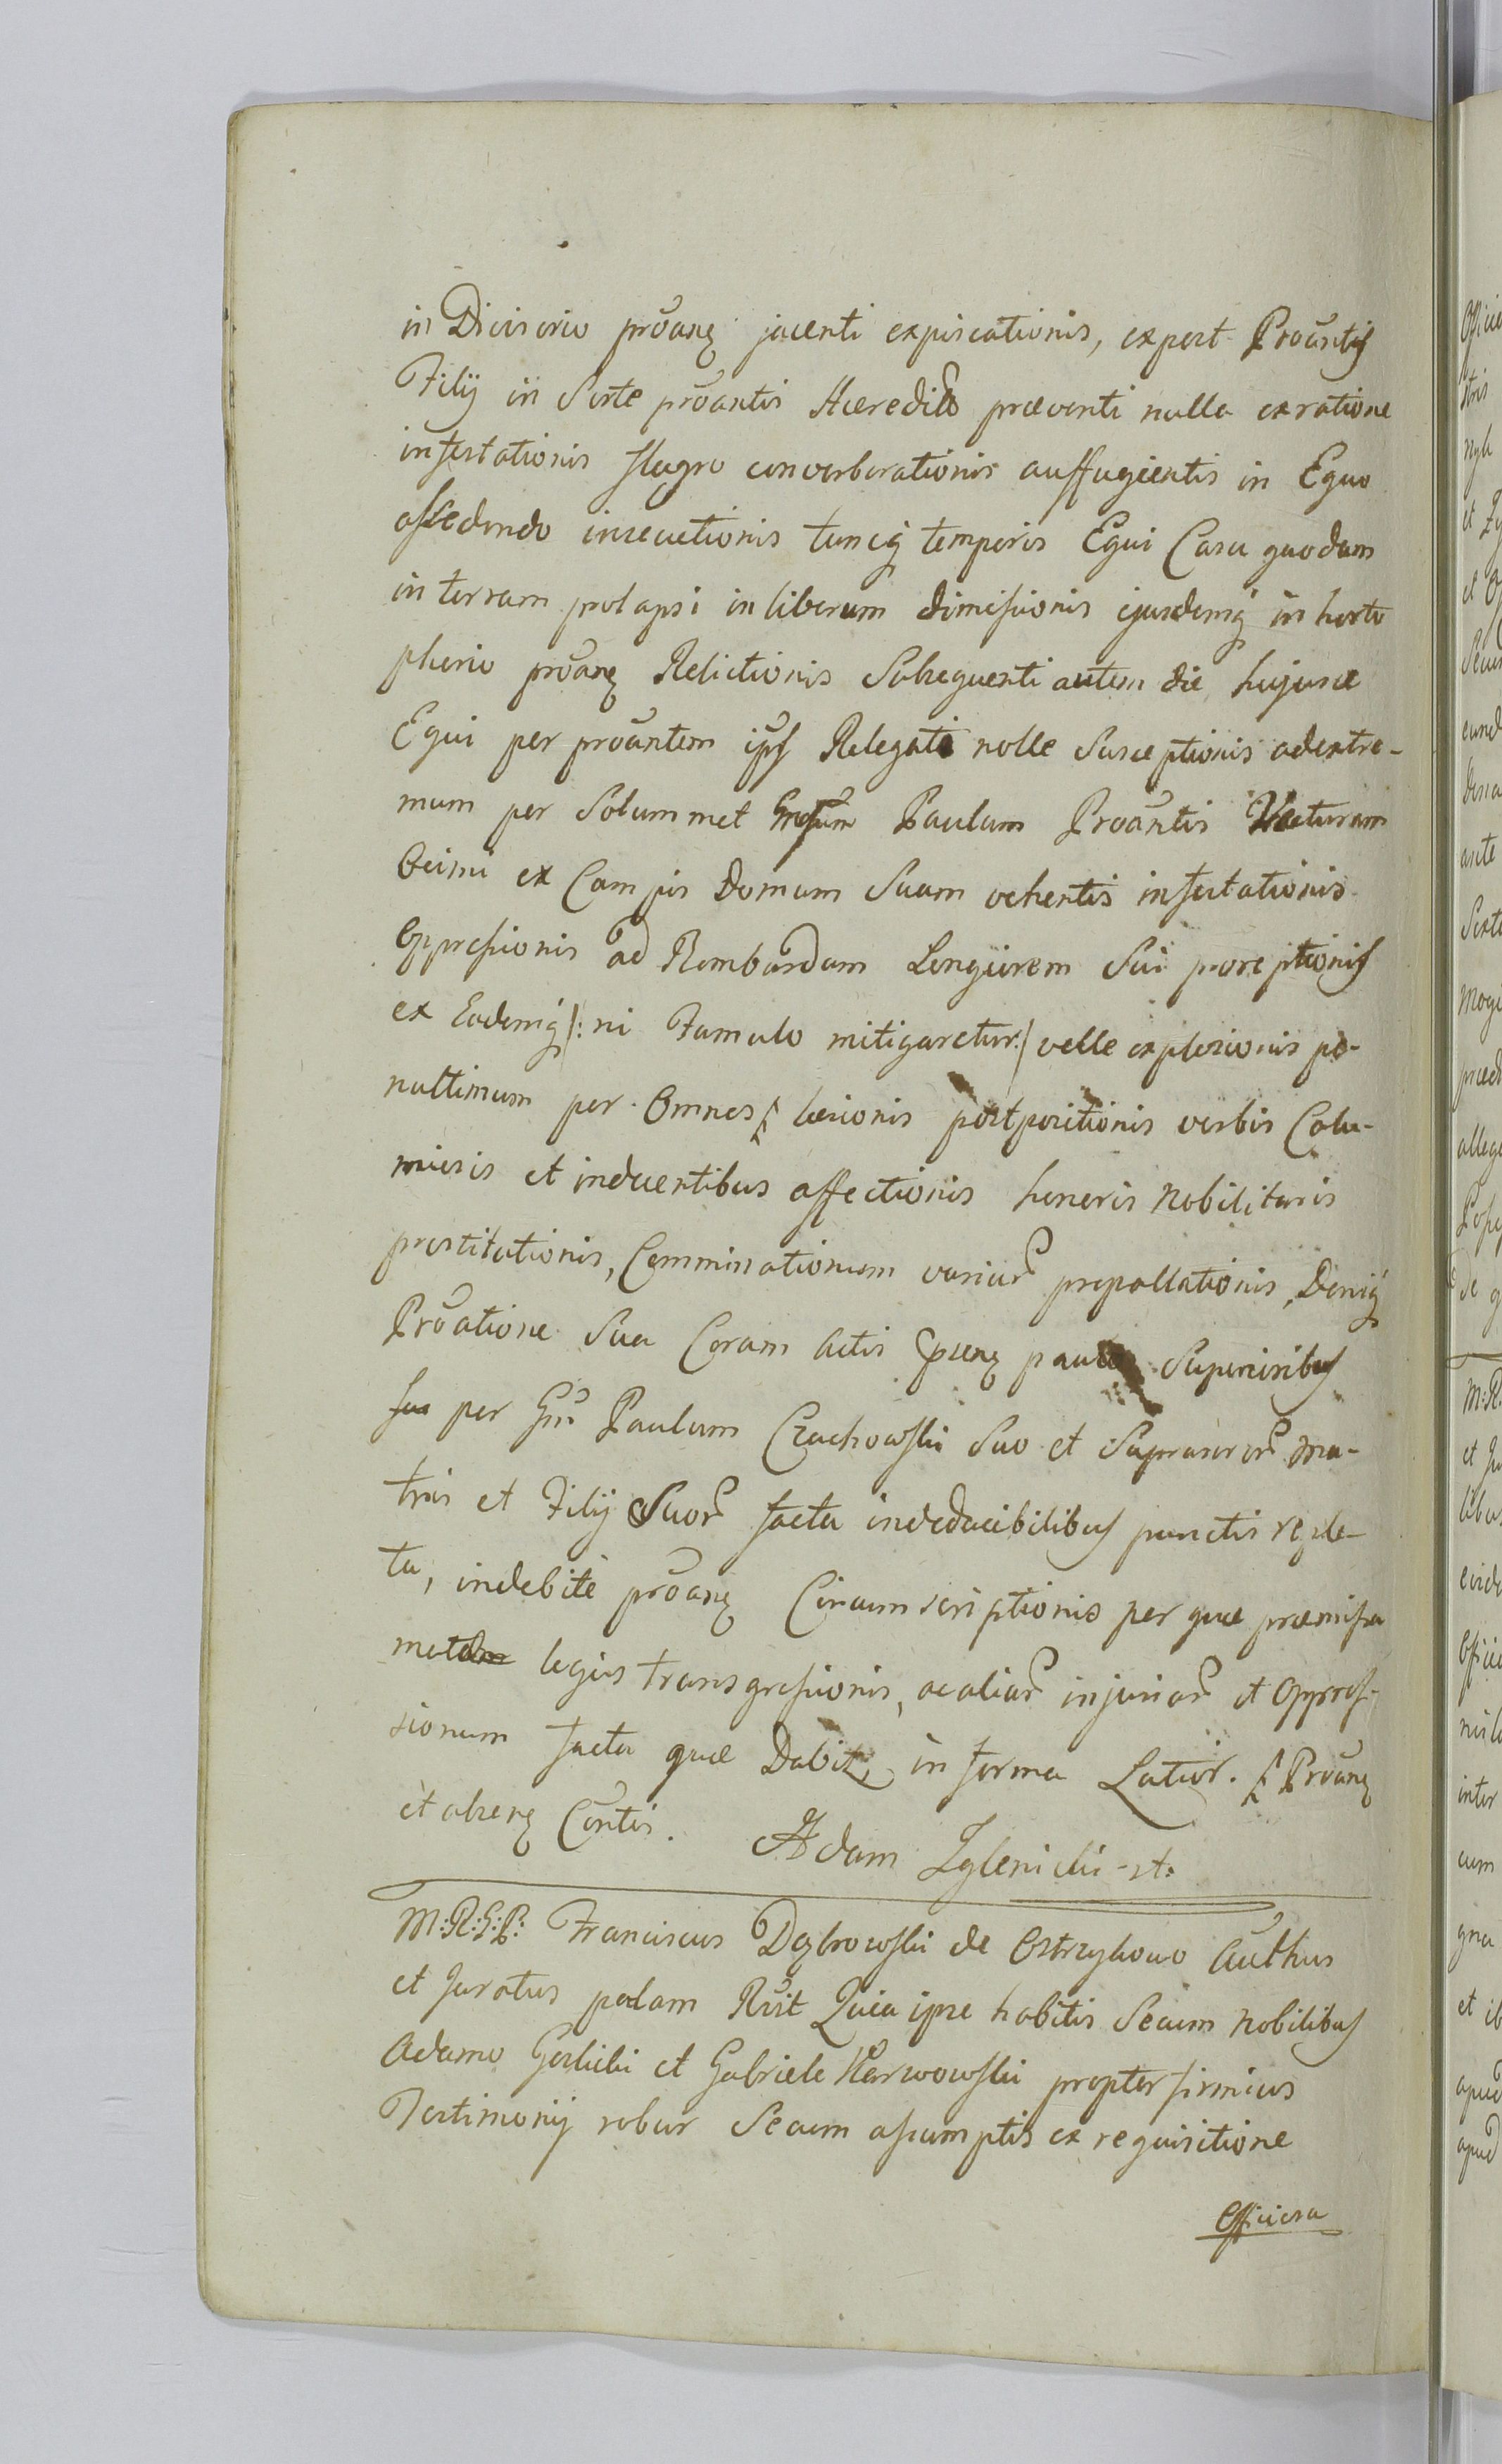 in Divisorio proanę jacenti expiscationis, expost Proantis
Filij in Sorte proantis Haeredito praeventi nulla ex ratione
infestationis flagro converberationis auffugientis in Equo
assedendo insecutionis tuncq temporis Equi Casu quodam
in terram prolapsi in liberum dimissionis ejusdemq in horto
pherio proanę Relictionis Subsequenti autem die hujusce
Equi per proantem ipss Relegati nolle Susceptionis adextre-
mum per Solummet Paulum Proantis Vecturam
Oeimi ex Campis Domum Suam vehentis infestationis
Oppressionis ad Bombardam Longiorem Sui proreptionis
ex Eademq /: ni Famulo mitigaretur :/ velle explosionis pe-
nultimum per Omnes laesionis postpositionis verbis Calu-
miosis et inducentibus affectionis honoris Nobilitaris
prostitutionis, Comminationum variar propallationis, Deniq
Proatione Sua Coram Actis psenę paulo Superioribus
sua per Gm Paulum Czachowski Suo et Suprascror Ma-
tris et Filij Suor facta indeducibilibus punctis reple-
ta, indebite proanę Circumscriptionis per quae praemissa
met legis transgressionis, ac aliar injuriar et Oppres-
sionum facta quae Dabit, in forma Latior. Proanę
et absenę Contis. Adam Zglenicki -st:
M:R:G:P: Franciscus Dąbrowski de Ostrzykowo Authus
et Juratus palam Rsit Quia ipse habitis Secum Nobilibus
Adamo Gerlicki et Gabriele Karwowski propter firmius
Testimonij robur Secum assumptis ex requisitione
Officiosa